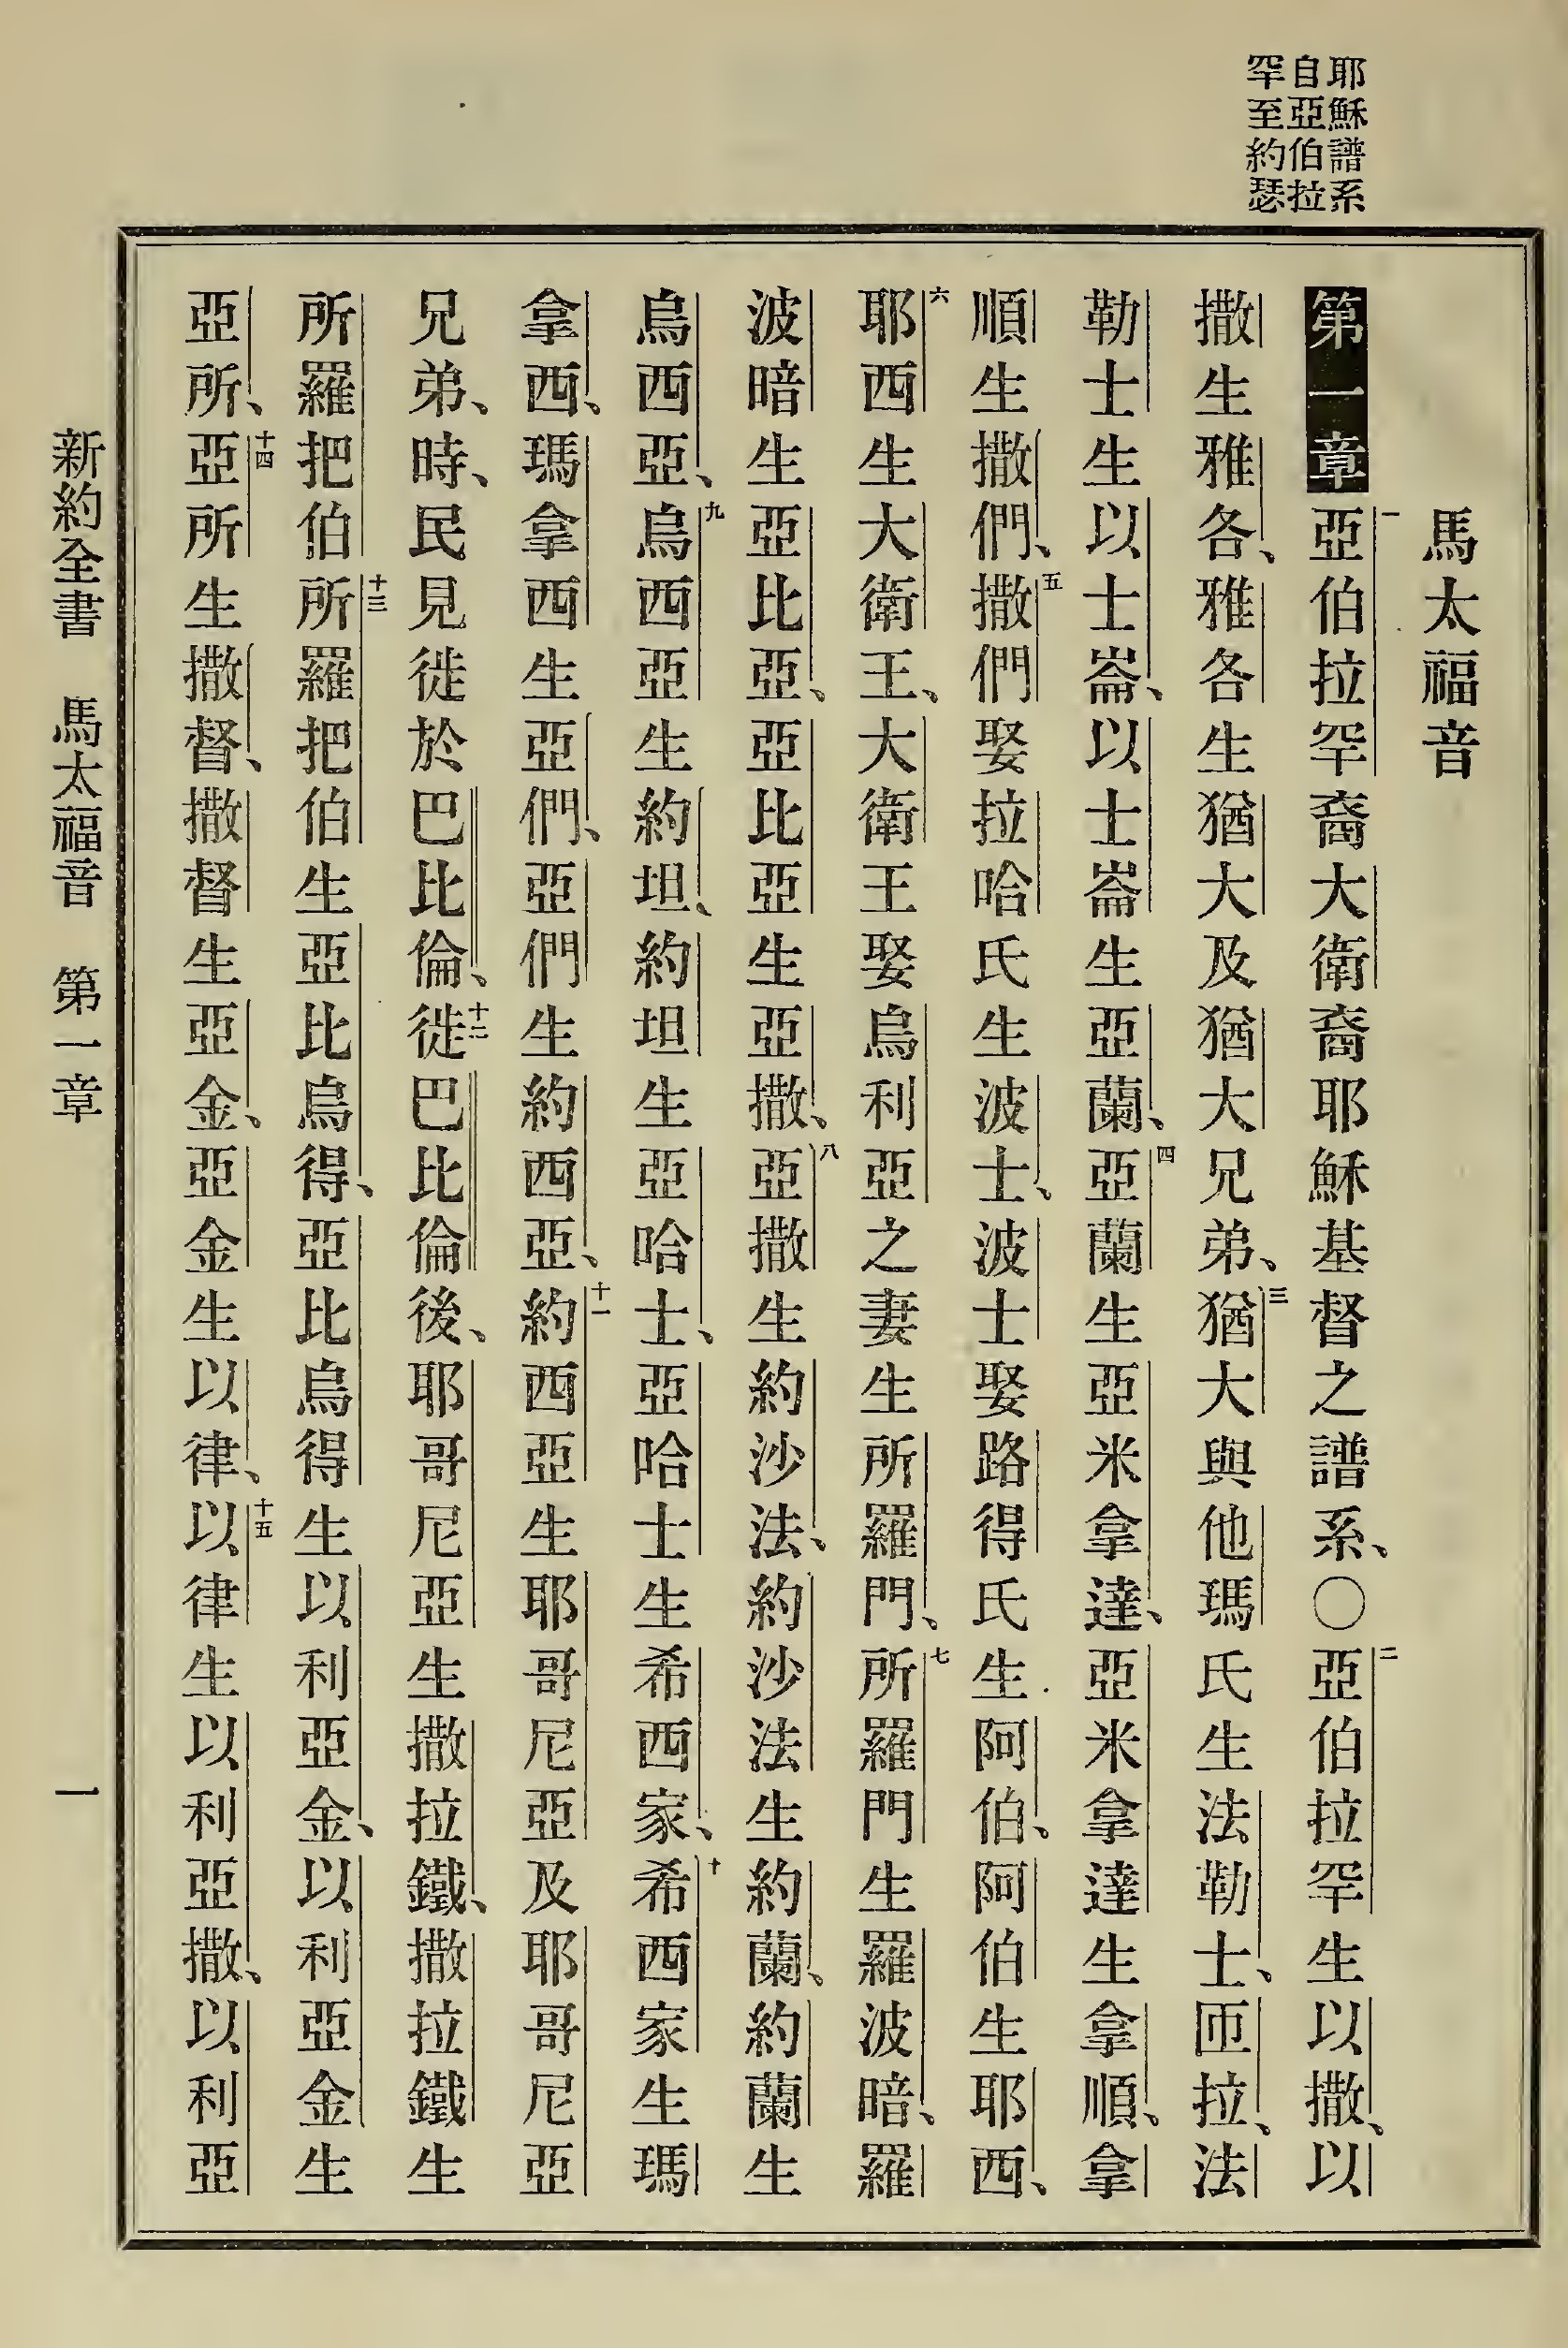 耶穌譜系
自亞伯拉
罕至約瑟
馬太福音
第一章一亞伯拉罕裔大衛裔耶穌基督之譜系、〇二亞伯拉罕生以撒、以
撒生雅各、雅各生猶大及猶大兄弟、三猶大與他瑪氏生法勒士、匝拉、法
勒士生以士崙、以士崙生亞蘭、四亞蘭生亞米拿達、亞米拿達生拿順、拿
順生撒們、五撒們娶拉哈氏生波士、波士娶路得氏生阿伯、阿伯生耶西、
六耶西生大衛王、大衛王娶烏利亞之妻生所羅門、七所羅門生羅波暗、羅
波暗生亞比亞、亞比亞生亞撒、八亞撒生約沙法、約沙法生約蘭、約蘭生
烏西亞、九烏西亞生約坦、約坦生亞哈士、亞哈士生希西家、十希西家生瑪
拿西、瑪拿西生亞們、亞們生約西亞、十一約西亞生耶哥尼亞及耶哥尼亞
兄弟、時、民見徙於巴比倫、十二徙巴比倫後、耶哥尼亞生撒拉鐵、撒拉鐵生
所羅把伯十三所羅把伯生亞比烏得、亞比烏得生以利亞金、以利亞金生
亞所、十四亞所生撒督、撒督生亞金、亞金生以律、十五以律生以利亞撒、以利亞
新約全書 馬太福音 第一章 一